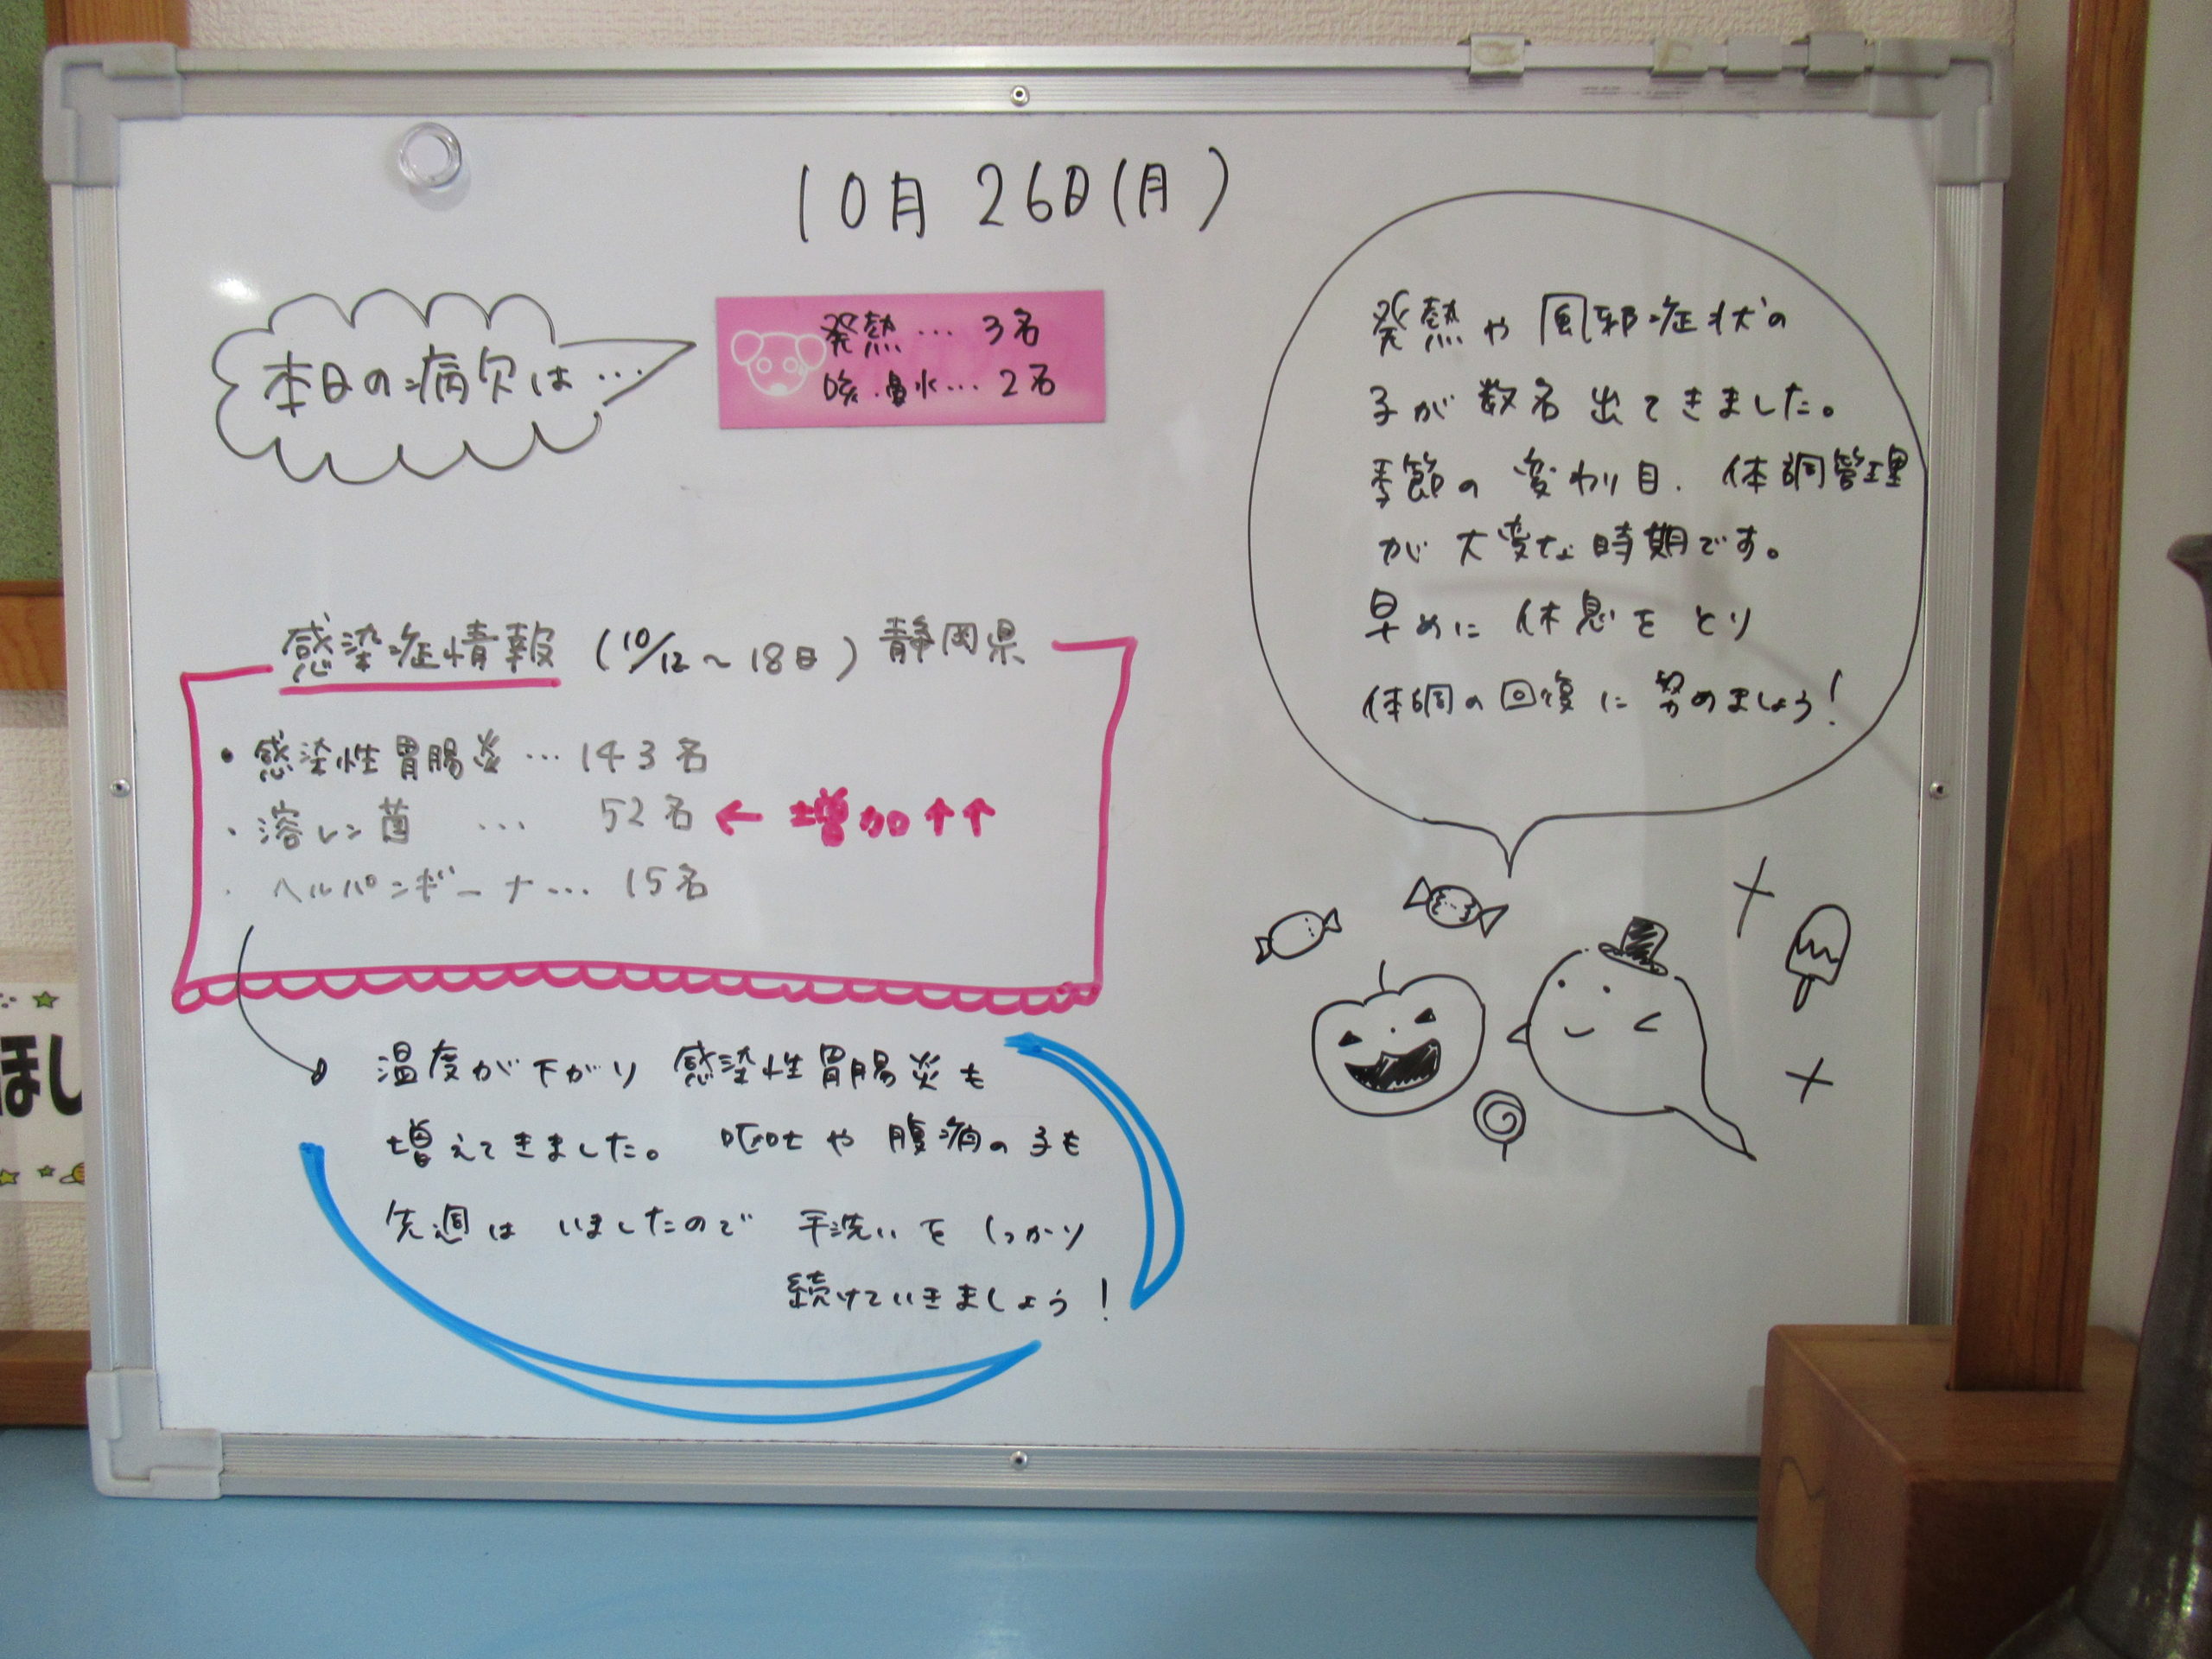 10月 26日(月)
本日の病欠は…
発熱… 3名
咳.鼻水… 2名
発熱や風邪症状の
子が数名出てきました。
季節の変わり目. 体調管理
が大変な時期です。
早めに休息をとり
体調の回復に努めましょう!
感染症情報 (10/12~18日) 静岡県
・感染性胃腸炎…143名
・溶レン菌 … 52名 ← 増加↑↑
・ヘルパンギーナ… 15名
温度が下がり 感染性胃腸炎も
増えてきました。 嘔吐や腹痛の子も
先週は いましたので 手洗いをしっかり
続けていきましょう!
ほし